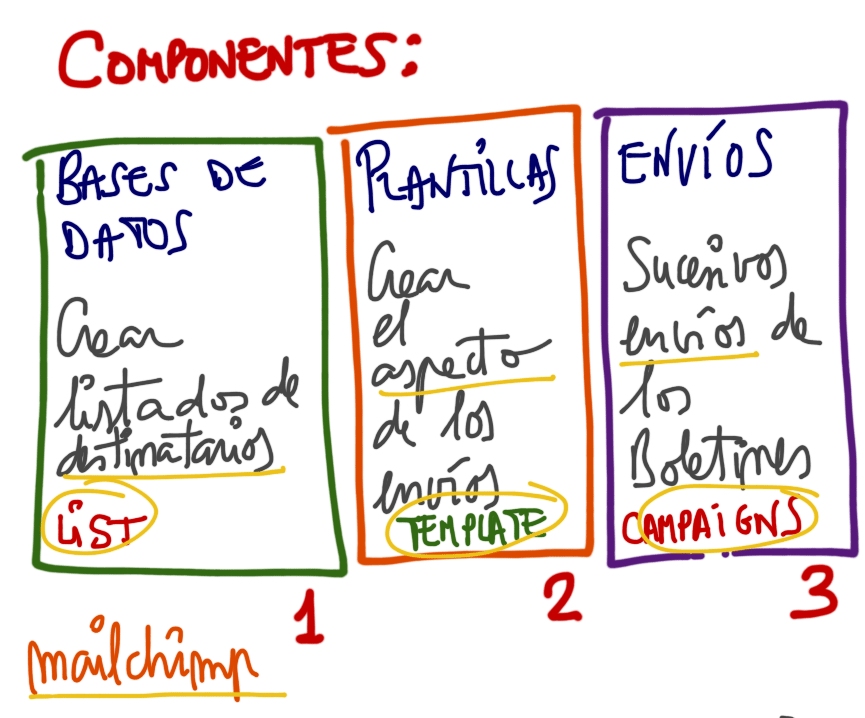 COMPONENTES:
BASES DE
DATOS
Crear
listados de
destinatarios
LIST
1
PLANTILLAS
Crear
el
aspecto
de los
envíos
TEMPLATE
2
ENVÍOS
Sucesivos
envíos de
los
Boletines
CAMPAIGNS
3
mailchimp